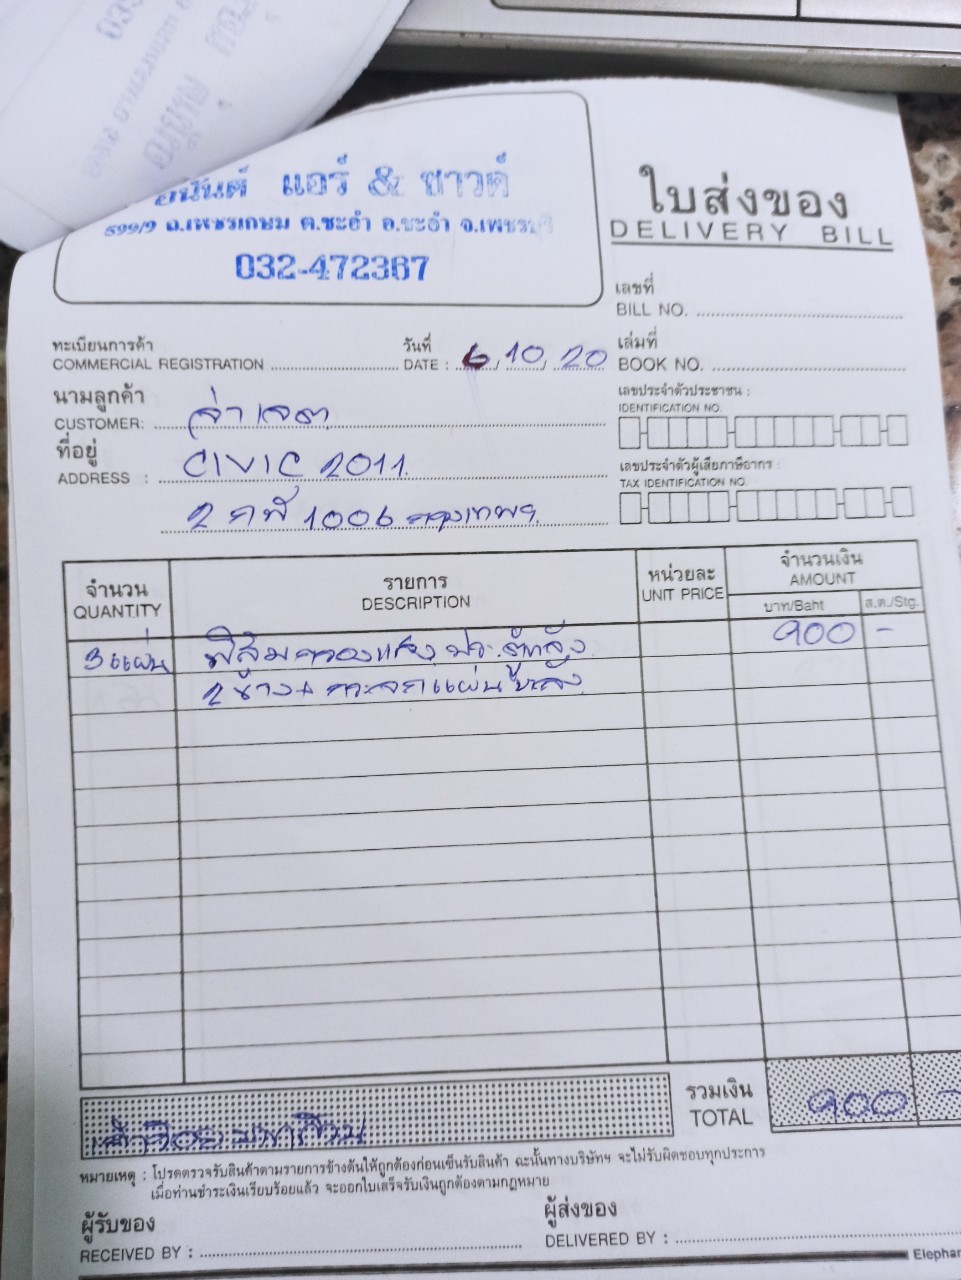 อนันต์ แอร์ & ซาวด์
599/9 ถ.เพชรเกษม ต.ชะอำ อ.ชะอำ จ.เพชรบุรี
032-472367
ใบส่งของ
DELIVERY BILL
เลขที่
BILL NO.
ทะเบียนการค้า
COMMERCIAL REGISTRATION
วันที่
DATE : 6/10/20
เล่มที่
BOOK NO.
นามลูกค้า
CUSTOMER: จ่าเจต
เลขประจำตัวประชาชน :
IDENTIFICATION NO.
ที่อยู่
ADDRESS : CIVIC 2011
เลขประจำตัวผู้เสียภาษีอากร :
TAX IDENTIFICATION NO.
2 กฬ 1006 กรุงเทพฯ
จำนวน
QUANTITY
รายการ
DESCRIPTION
หน่วยละ
UNIT PRICE
จำนวนเงิน
AMOUNT
บาท/Baht
ส.ต./Stg.
3 แผ่น ฟิล์มกรองแสง ประตูหลัง 900 -
2 ข้าง + กระจกแผ่นหลัง
รวมเงิน
TOTAL
900 -
เก้าร้อยบาทถ้วน
หมายเหตุ : โปรดตรวจรับสินค้าตามรายการข้างต้นให้ถูกต้องก่อนเซ็นรับสินค้า ฉะนั้นทางบริษัทฯ จะไม่รับผิดชอบทุกประการ
เมื่อท่านชำระเงินเรียบร้อยแล้ว จะออกใบเสร็จรับเงินถูกต้องตามกฎหมาย
ผู้รับของ
RECEIVED BY :
ผู้ส่งของ
DELIVERED BY :